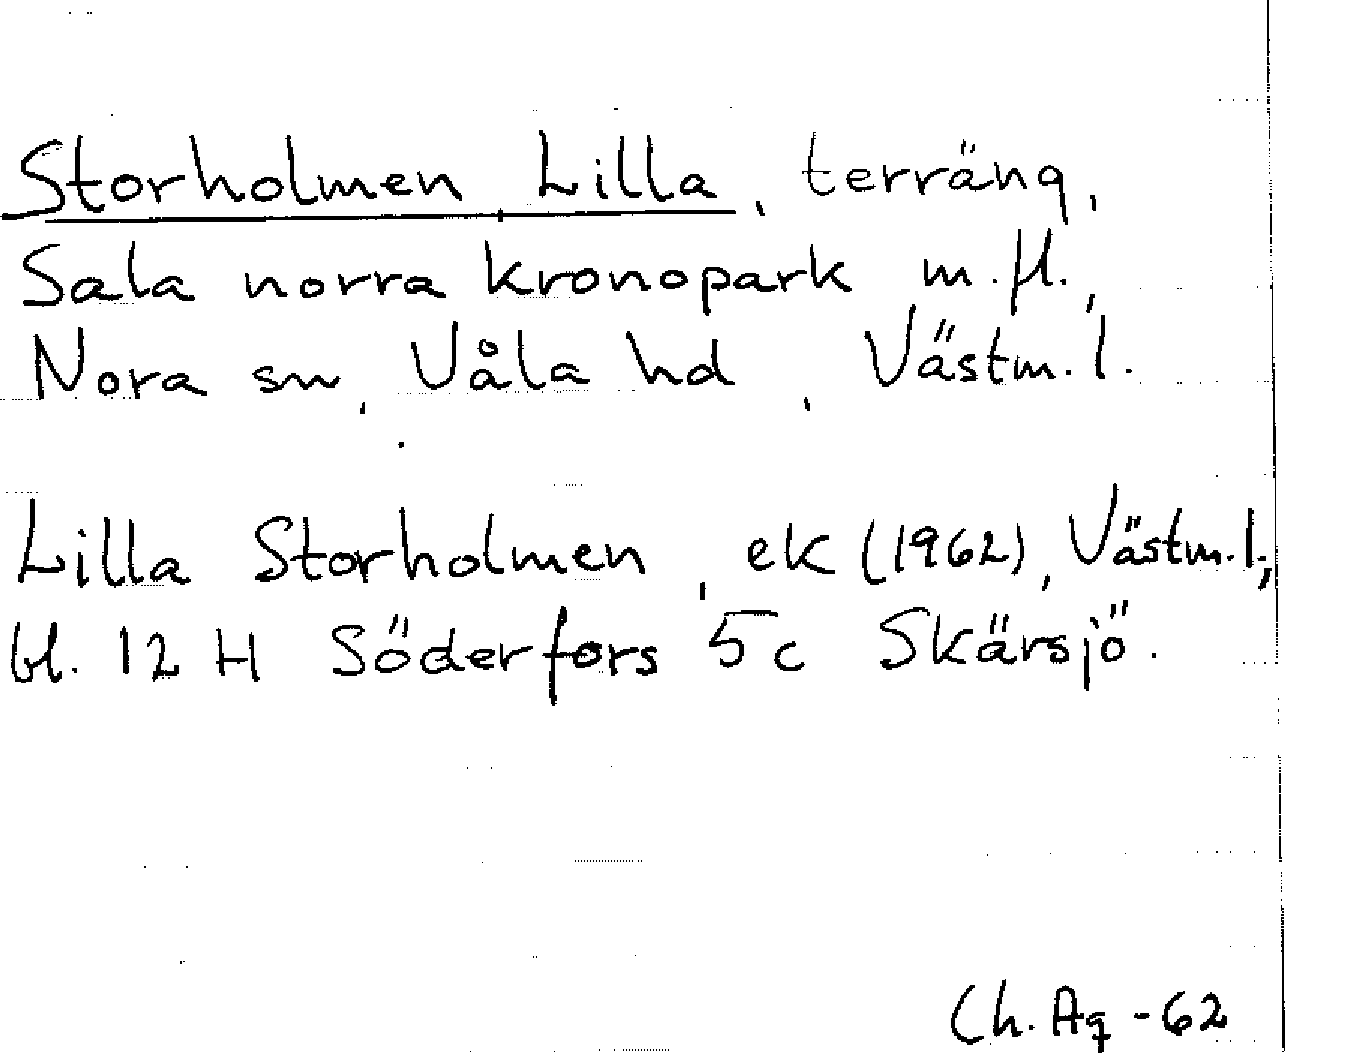 Storholmen Lilla, terräng,
Sala norra kronopark m.fl.,
Nora sn, Våla hd, Västm.l.
Lilla Storholmen, ek (1962), Västm.l.;
bl. 12 H Söderfors 5c Skärsjö.
Ch. Ag -62